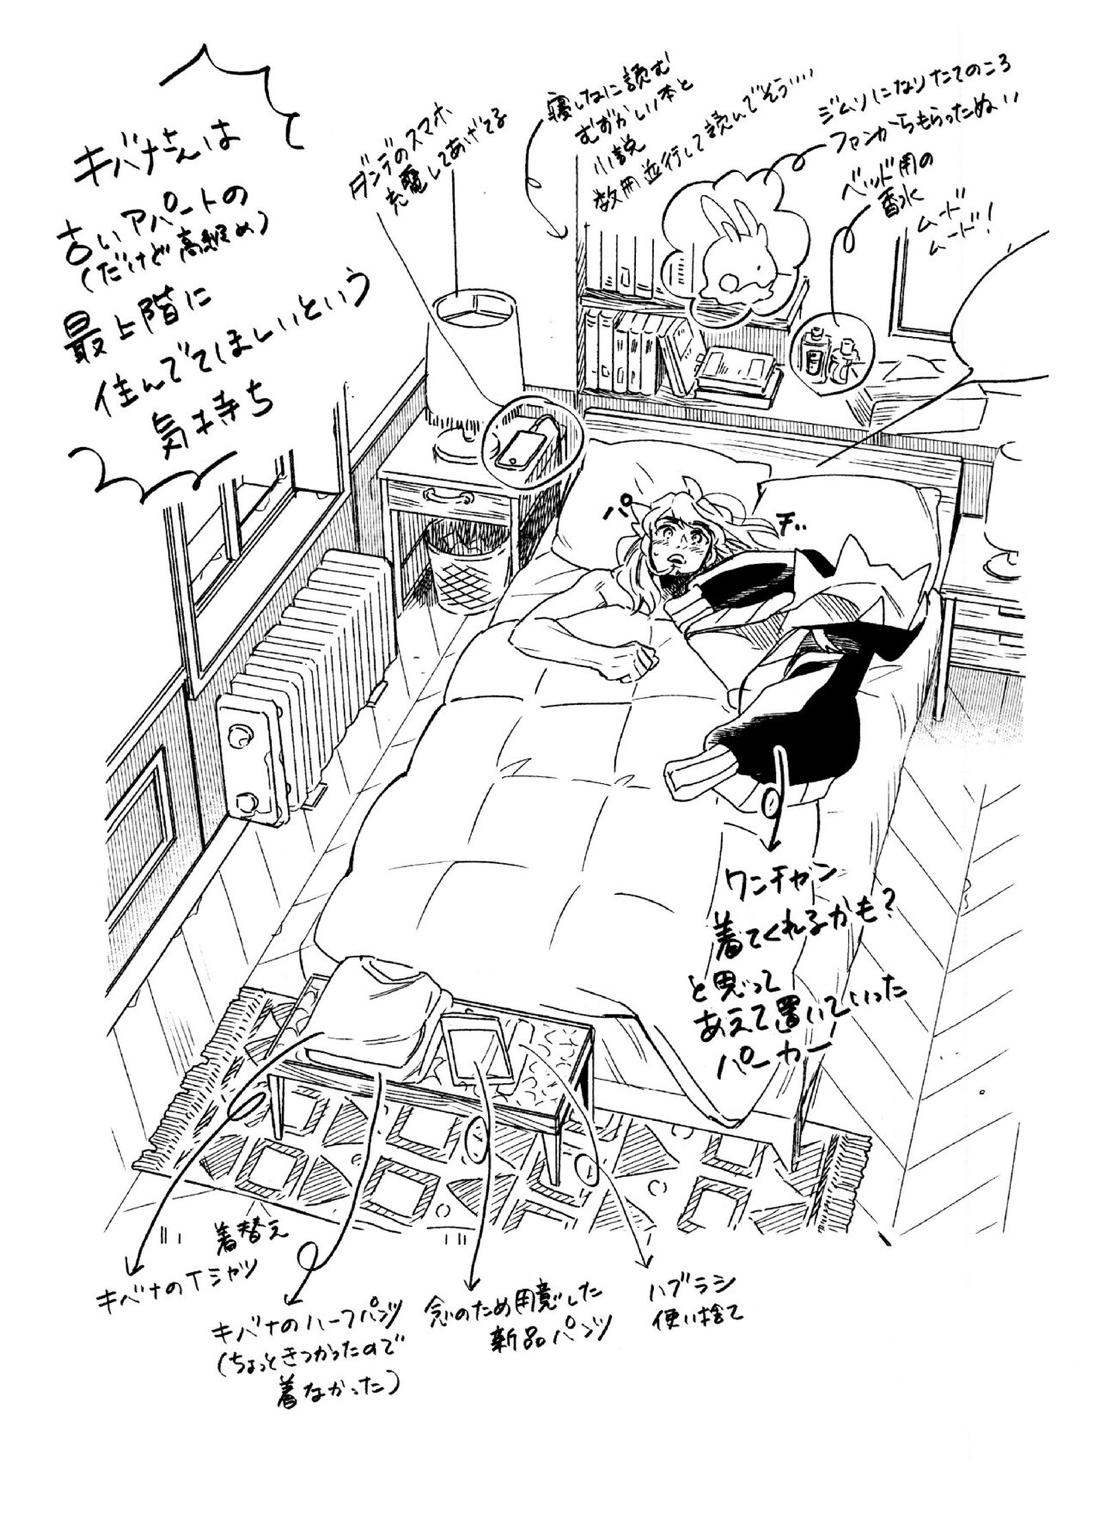 キバナさんは
古いアパートの
(だけど高級め)
最上階に
住んでてほしいという
気持ち
ダンデのスマホ
充電してあげてる
寝しなに読む
むずかしい本と
小説
数冊並行して読んでそう….
ジムリになりたてのころ
ファンからもらったぬい
ベッド用の
香水
ムード
ムード!
パ
チ..
ワンチャン
着てくれるかも?
と思って
あえて置いていった
パーカー
着替え
キバナのTシャツ
キバナのハーフパンツ
(ちょっときつかったので
着なかった)
念のため用意した
新品パンツ
ハブラシ
使い捨て